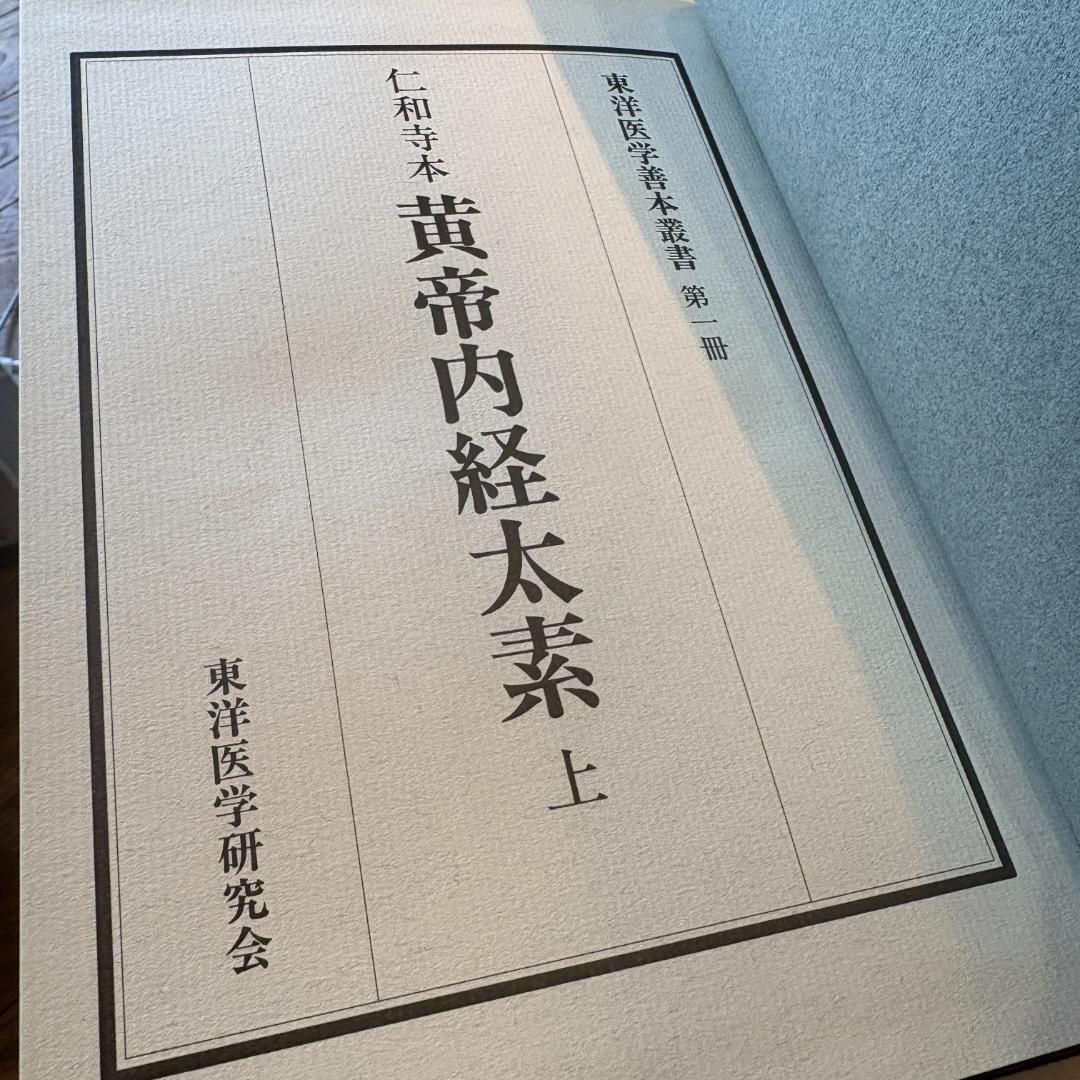 東洋医学善本叢書 第一冊
仁和寺本 黄帝内経太素 上
東洋医学研究会